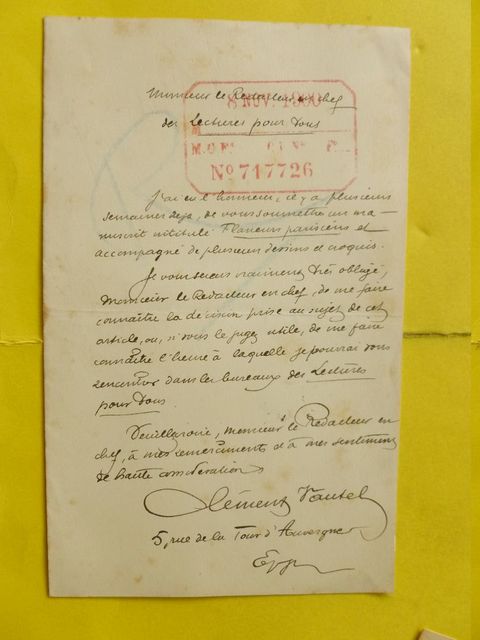 Monsieur le Rédacteur en chef
8 NOV. 1900
des Lectures pour Tous
M.
No 717726
J'ai eu l'honneur, il y a plusieurs
semaines déjà, de vous soumettre un ma-
nuscrit intitulé Flaneurs parisiens et
accompagné de plusieurs dessins et croquis.
Je vous serais vraiment très obligé,
Monsieur le Rédacteur en chef, de me faire
connaître la décision prise au sujet de cet
article, ou, si vous le jugez utile, de me faire
connaître l'heure à laquelle je pourrai vous
rencontrer dans les bureaux des Lectures
pour Tous
Veuillez croire, Monsieur le Rédacteur en
chef, à mes remerciments et à mes sentiments
de haute considération
Clément Vautel
5, rue de la Tour d'Auvergne